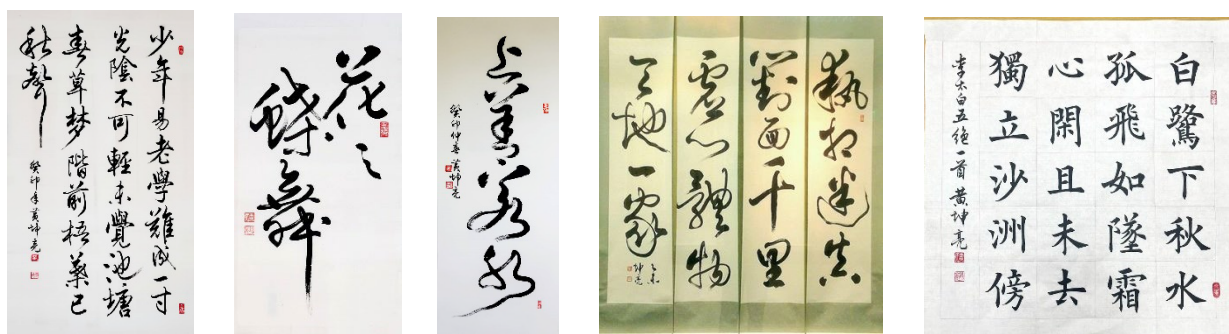 少年易老學難成一寸
光陰不可輕未覺池塘
春草梦階前梧葉已
秋聲
癸卯年黃坤亮
花之
蝶舞
上善若水
癸卯仲春黃坤亮
執相迷真
對面千里
虛心體物
天地一家
坤亮
白鷺下秋水
孤飛如墜霜
心閑且未去
獨立沙洲傍
李太白五絕一首 黃坤亮